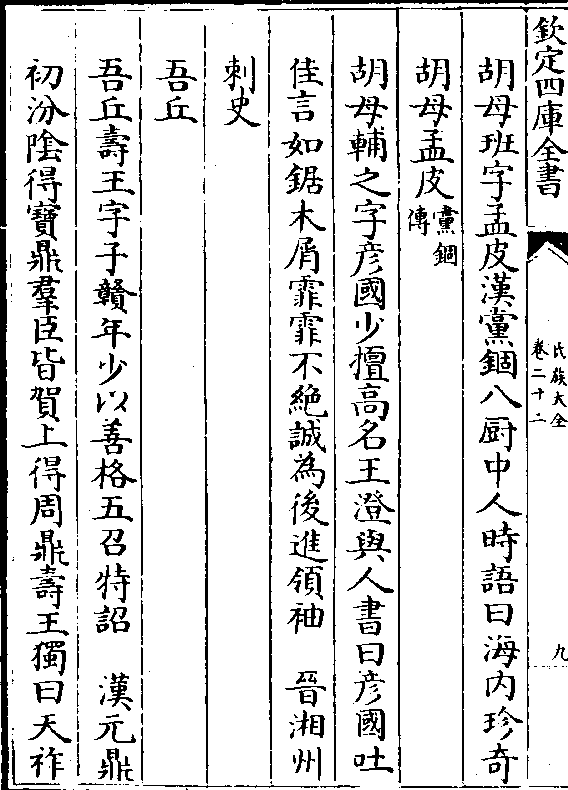 欽定四庫全書
氏族大全
卷二十二
九
胡母班字孟皮漢黨錮八厨中人時語曰海内珍奇
胡母孟皮黨錮傳
胡母輔之字彦國少擅高名王澄與人書曰彦國吐
佳言如鋸木屑霏霏不絶誠為後進領袖　晉湘州
刺史
吾丘
吾丘壽王字子贛年少以善格五召特詔　漢元鼎
初汾隂得寶鼎羣臣皆賀上得周鼎壽王獨曰天祚